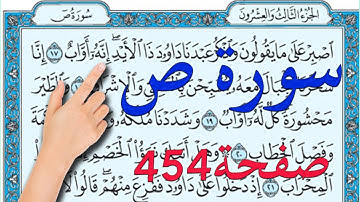 سورة ص
الجزء الثالث والعشرون
اصبر على ما يقولون واذكر عبدنا داوود ذا الأيد إنه أواب ١٧ إنا
معه يسبحن والطير
محشورة كل له أواب ١٩ وشددنا ملكه
وفصل الخطاب ٢٠ الخصم
المحراب ٢١ إذ دخلوا على داوود ففزع منهم قالوا لا
سورة ص
صفحة 454